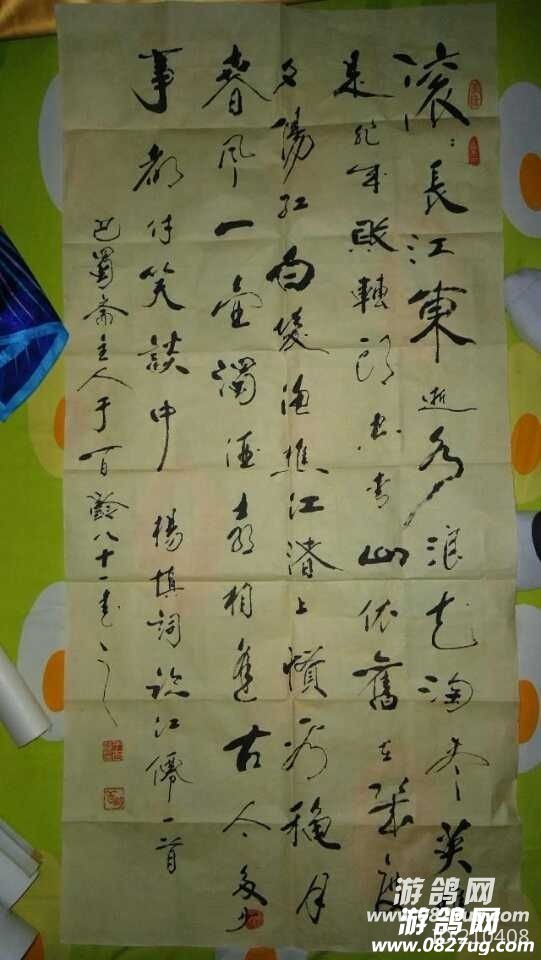 滚〻長江東逝水浪花淘尽英雄
是非成敗轉頭空青山依舊在幾度
夕陽紅白髮渔樵江渚上慣看穐月
春风一壶濁酒喜相逢古今多少
事都付笑談中 楊慎詞臨江僊一首
巴蜀斋主人于百齡八十一书之
游鸽网
www.0827ug.com
游鸽网
www.0827ug.com